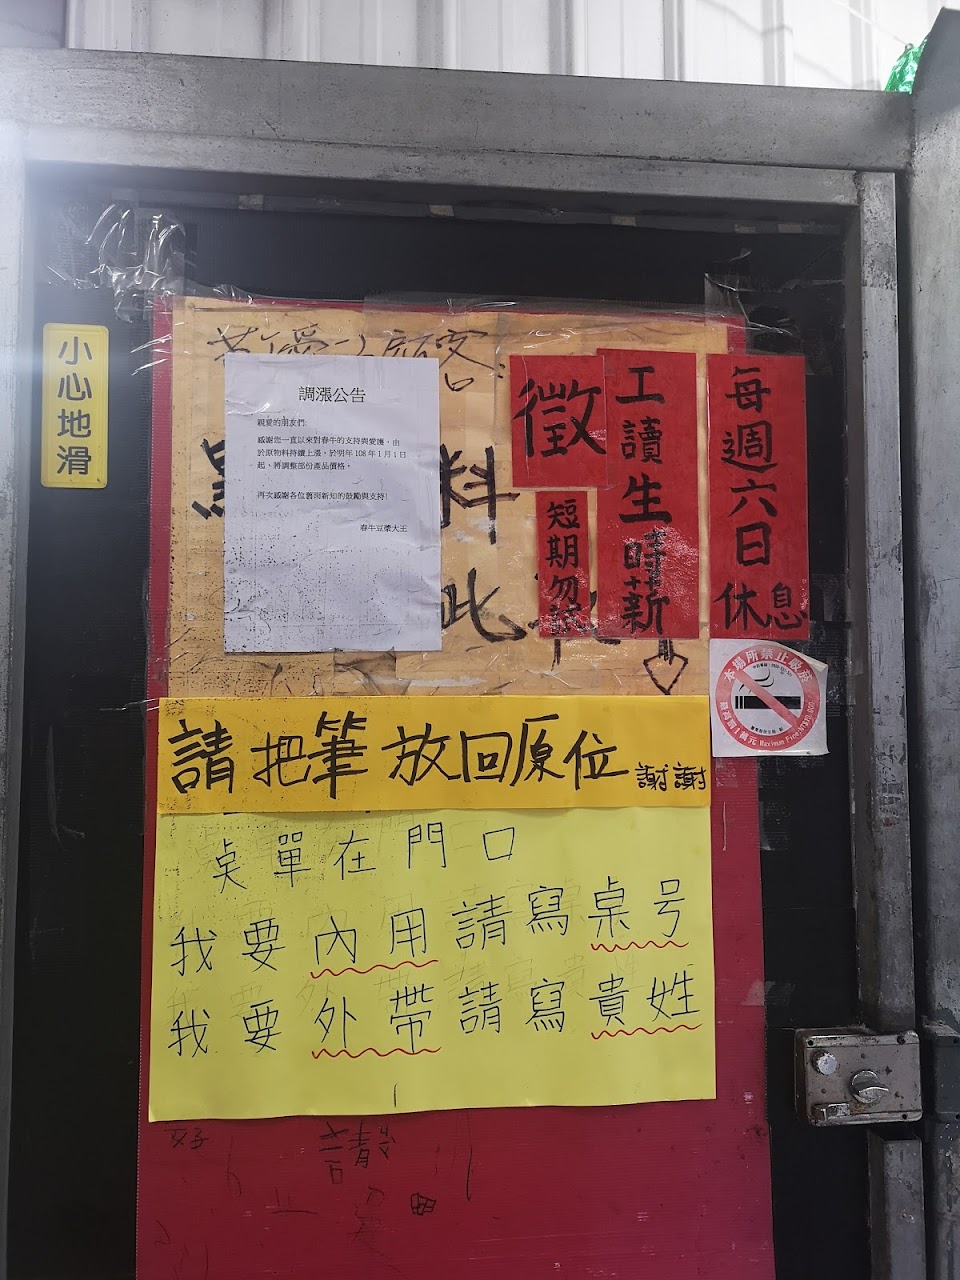 小心地滑
顧客
調漲公告
親愛的朋友們:
感謝您一直以來對春牛的支持與愛護。由
於原物料持續上漲,於明年 108 年 1 月 1 日
起、將調整部份產品價格。
再次感謝各位舊雨新知的鼓勵與支持!
春牛豆漿大王
料
此
徵
短期勿試
工讀生時薪
每週六日
休息
本場所禁止吸菸
請把筆放回原位謝謝
桌單在門口
我要內用請寫桌号
我要外帶請寫貴姓
請